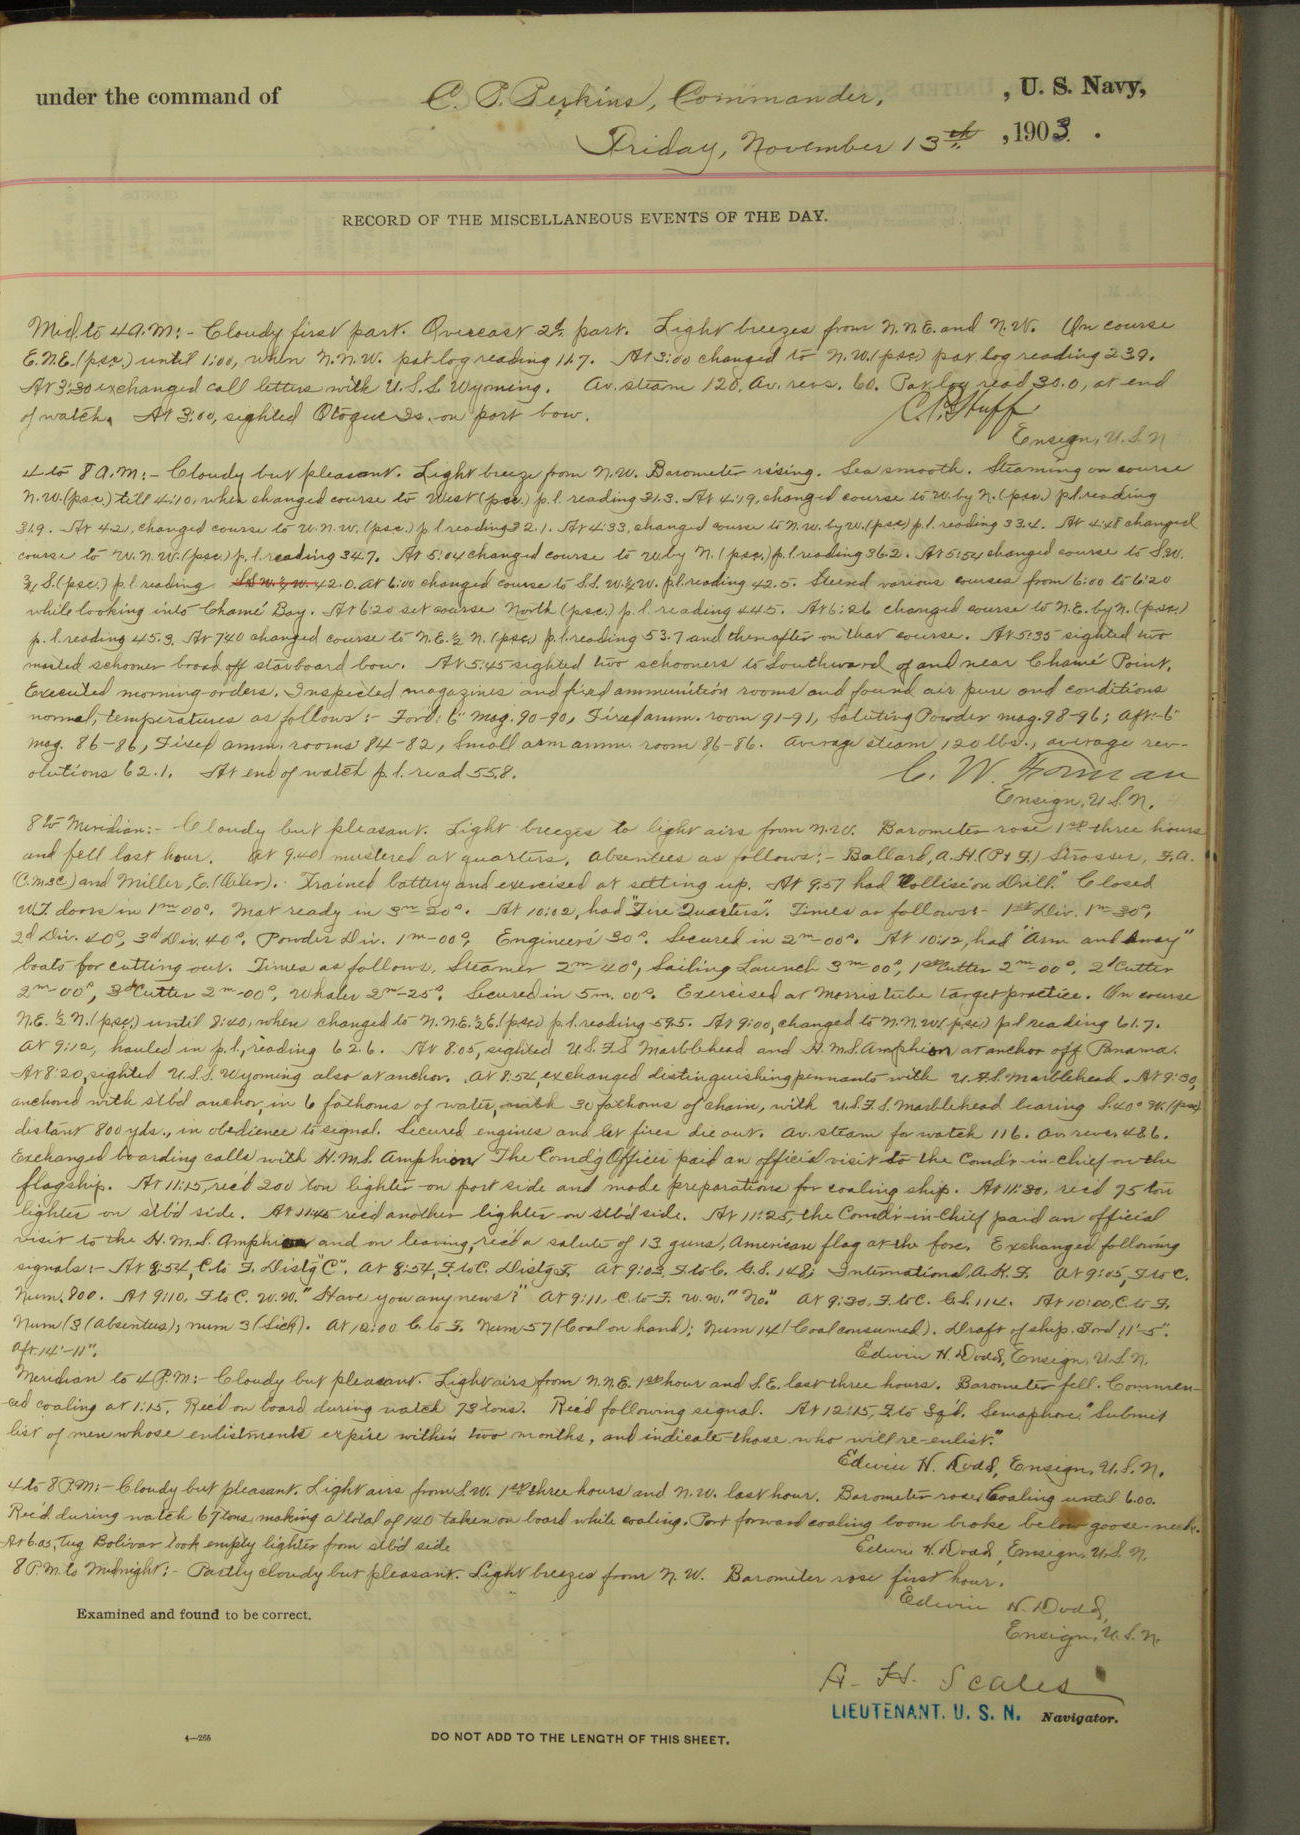 under the command of C. P. Perkins, Commander, , U. S. Navy,
Friday, November 13th , 1903.
RECORD OF THE MISCELLANEOUS EVENTS OF THE DAY.
Mid. to 4 A.M:- Cloudy first part. Overcast 2d. part. Light breezes from N.N.E. and N.W. On course
E.N.E. (psc.) until 1:00, when N.N.W. pat log reading 11.7. At 3:00 changed to N.W. (psc) pat. log reading 23.9.
At 3:30 exchanged call letters with U.S.S. Wyoming. Av. steam 120. Av. revs. 60. Pat log read 30.0, at end
of watch. At 3:00, sighted Otoque Is. on port bow.
Ensign, U.S.N
4 to 8 A.M:- Cloudy but pleasant. Light breeze from N.W. Barometer rising. Sea smooth. Steaming on course
N.W. (psc.) till 4:10, when changed course to West (psc.) p.l. reading 31.3. At 4:19, changed course to W. by N. (psc.) p.l. reading
31.9. At 4:21, changed course to W.N.W. (psc.) p.l. reading 32.1. At 4:33, changed course to N.W. by W. (psc) p.l. reading 33.4. At 4:48 changed
course to W.N.W. (psc.) p.l. reading 34.7. At 5:04 changed course to W by N. (psc.) p.l. reading 36.2. At 5:54 changed course to S.W.
S. (psc.) p.l. reading 42.0. At 6:00 changed course to S.S.W. ¼ W. p.l. reading 42.5. Steered various courses from 6:00 to 6:20
while looking into Chamé Bay. At 6:20 set course North (psc.) p.l. reading 44.5. At 6:26 changed course to N.E. by N. (psc.)
p.l. reading 45.3. At 7:40 changed course to N.E. ½ N. (psc.) p.l. reading 53.7 and thereafter on that course. At 5:35 sighted two
masted schooner broad off starboard bow. At 5:45 sighted two schooners to Southward of and near Chamé Point.
Executed morning orders. Inspected magazines and fixed ammunition rooms and found air pure and conditions
normal, temperatures as follows:- For'd: 6" mag. 90-90, Fixed amm. room 91-91, Saluting Powder mag. 98-96; Aft:- 6"
mag. 86-86, Fixed amm. rooms 84-82, Small arm amm. room 86-86. Average steam 120 lbs., average rev-
olutions 62.1. At end of watch p.l. read 55.8.
C. W. Forman
Ensign, U.S.N.
8 to Meridian:- Cloudy but pleasant. Light breezes to light airs from N.W. Barometer rose 1st three hours
and fell last hour. At 9.40 mustered at quarters, absentees as follows:- Ballard, A.H. (P1 F.) Strosser, F.A.
(C.M3C) and Miller, E. (Oiler). Trained battery and exercised at setting up. At 9:57 had "Collision Drill." Closed
W.T. doors in 1m-00s. Mat ready in 3m-20s. At 10:02, had "Fire Quarters". Times as follows:- 1st Div. 1m-30s,
2d Div. 40s, 3d Div. 40s, Powder Div. 1m-00s, Engineers 30s. Secured in 2m-00s. At 10:12, had "Arm and Away"
boats for cutting out. Times as follows, Steamer 2m-40s, Sailing Launch 3m-00s, 1st Cutter 2m-00s, 2d Cutter
2m-00s, 3d Cutter 2m-00s, Whaler 2m-25s. Secured in 5m. 00s. Exercised at Morris tube target practice. On course
N.E. ½ N. (psc.) until 8:40, when changed to N.N.E. ½ E. (psc.) p.l. reading 59.5. At 9:00, changed to N.N.W. (psc.) p.l. reading 61.7.
At 9:12, hauled in p.l., reading 62.6. At 8.05, sighted U.S.F.S. Marblehead and H.M.S. Amphion at anchor off Panama.
At 8:20, sighted U.S.S. Wyoming also at anchor. At 8:54, exchanged distinguishing pennants with U.S.F.S. Marblehead. At 9:30,
anchored with stb'd anchor, in 6 fathoms of water, with 30 fathoms of chain, with U.S.F.S. Marblehead bearing S. 40° W. (psc)
distant 800 yds., in obedience to signal. Secured engines and let fires die out. Av. steam for watch 116. Av. revs. 48.6.
Exchanged boarding calls with H.M.S. Amphion. The Comd'g Officer paid an official visit to the Comd'r-in-chief on the
flagship. At 11:15, rec'd 200 ton lighter on port side and made preparations for coaling ship. At 11:30, rec'd 75 ton
lighter on stb'd side. At 11:45 rec'd another lighter on stb'd side. At 11:25, the Comd'r-in-Chief paid an official
visit to the H.M.S. Amphion and on leaving, rec'd a salute of 13 guns, American flag at the fore. Exchanged following
signals:- At 8:54, C. to F. Dist'g "C". At 8:54, F. to C. Dist'g F. At 9:03, F. to C. G.S. 148; International A.K.F. At 9:05, F. to C.
Num. 800. At 9:10, F. to C. W.W. "Have you any news?" At 9:11, C. to F. W.W. "No." At 9:30, F. to C. G.S. 114. At 10:00, C. to F.
Num (3 (Absentees); num 3 (Sick). At 12:00 C. to F. Num 57 (Coal on hand); Num 14 (Coal consumed). Draft of ship. For'd 11'-5".
Aft. 14'-11".
Edwin H. Dodd, Ensign, U.S.N.
Meridian to 4 P.M:- Cloudy but pleasant. Light airs from N.N.E. 1st hour and S.E. last three hours. Barometer fell. Commen-
ced coaling at 1:15. Rec'd on board during watch 73 tons. Rec'd following signal. At 12:15, F. to Sq'd. Semaphore, "Submit
list of men whose enlistments expire within two months, and indicate those who will re-enlist."
Edwin H. Dodd, Ensign, U.S.N.
4 to 8 P.M:- Cloudy but pleasant. Light airs from S.W. 1st three hours and N.W. last hour. Barometer rose. Coaling until 6.00.
Rec'd during watch 67 tons, making a total of 140 taken on board while coaling. Port forward coaling boom broke below goose-neck.
At 6.05, Tug Bolivar took empty lighter from stb'd side
Edwin H. Dodd, Ensign, U.S.N.
8 P.M. to Midnight:- Partly cloudy but pleasant. Light breezes from N.W. Barometer rose first hour.
Edwin H. Dodd,
Ensign, U.S.N.
Examined and found to be correct.
A. H. Scales
LIEUTENANT. U. S. N. Navigator.
4—265
DO NOT ADD TO THE LENGTH OF THIS SHEET.